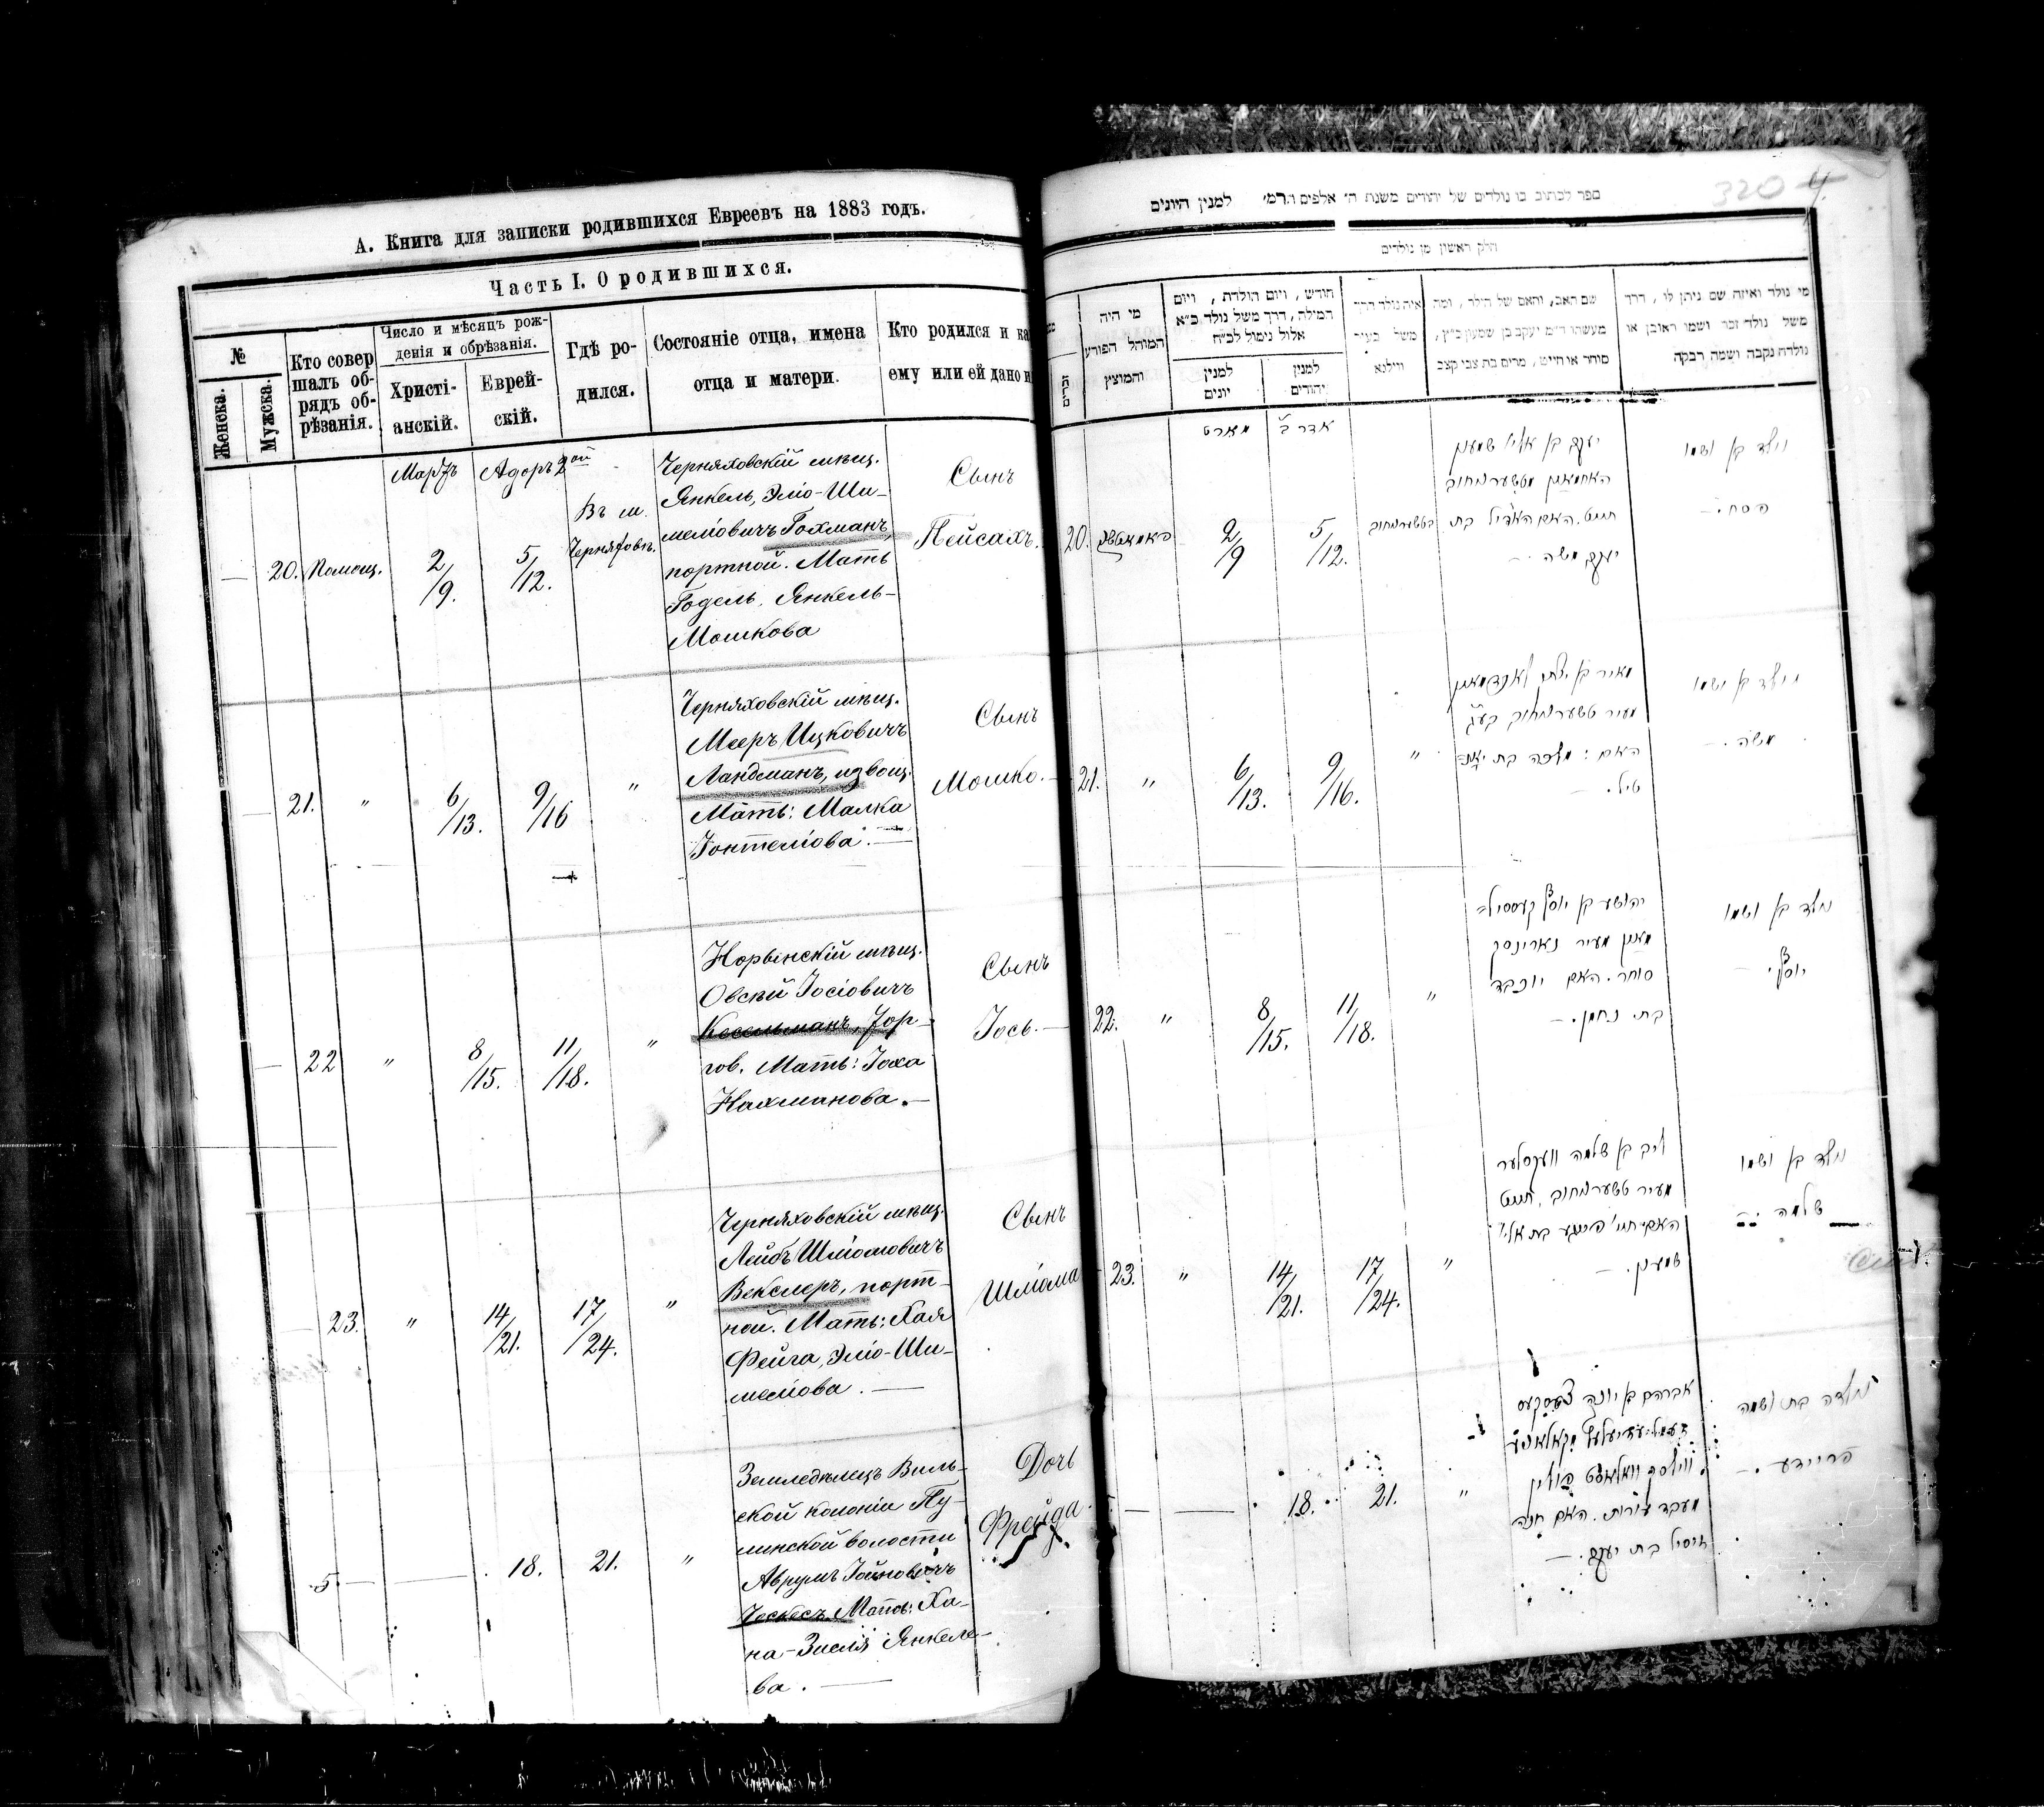 А. Книга для записки родившихся Евреевъ на 1883 годъ.
Часть I. О родившихся.
№
Женска.
Мужска.
Кто совер
шалъ об-
рядъ об-
рѣзанія.
Число и мѣсяцъ рож-
денія и обрѣзанія.
Христі-
анскій.
Еврей-
скій.
Гдѣ ро-
дился.
Состояніе отца, имена
отца и матери.
Кто родился и ка
ему или ей дано и
Мартъ
Адоръ 2ой
20.
Помощ.
2/9.
5/12.
Въ м.
Черняховъ.
Черняховскій мѣщ.
Янкель, Эліо-Ши-
меліовичъ Гохманъ,
портной. Мать
Годель, Янкель-
Мошкова
Сынъ
Пейсахъ.
21.
"
6/13.
9/16
"
Черняховскій мѣщ.
Мееръ Ицковичъ
Ландманъ, извощ.
Мать: Малка
Іонтеліова. —
Сынъ
Мошко. —
22
"
8/15.
11/18.
"
Норинскій мѣщ.
Овсѣй Іосіовичъ
Кесельманъ, Тор-
гов. Мать: Іоха
Нахманова. —
Сынъ
Іось. —
23.
"
14/21.
17/24.
"
Черняховскій мѣщ.
Лейбъ Шліомовичъ
Векслеръ, порт-
ной. Мать: Хая
Фейга, Эліо-Ши-
меліова. —
Сынъ
Шліома
5
—
18.
21.
"
Земледѣлецъ Виль-
ской колоніи Пу-
линской волости
Аврумъ Іойновичъ
Ческесъ Мать: Ха-
на-Зисля Янкеле-
ва. —
Дочь
Фрейда
320
4.
ספר לכתוב בו נולדים של יהודים משנת ה' אלפים תרמ' למנין היונים
חלק ראשון מן נולדים
מי היה
המוהל הפורע
והמוצץ
חודש, ויום הולדת, ויום
המילה, דרך משל נולד כ״א
אלול נימול לכ״ח
למנין
יונים
למנין
יהודים
איה נולד דרך
משל בעיר
ווילנא
שם האב, והאם של הילד, ומה
מעשהו ד״מ יעקב בן שמעון כ״ץ,
סוחר או חייט, מרים בת צבי קצב
מי נולד ואיזה שם ניתן לו, דרך
משל נולד זכר ושמו ראובן או
נולדה נקבה ושמה רבקה
מארט
אדר ב
20.
2/9
5/12.
בטשערנחוב
יעקב בן אליו שמעון
האחמאן מטשערנחוב
חייט. האם האדיל בת
יעקב משה —
נולד בן ושמו
פסח. —
21.
"
6/13.
9/16.
"
מאיר בן יצחק לאנדמאן
מעיר טשערנחוב
האם: מלכה בת יאנ=
טיל. —
נולד בן ושמו
משה. —
22.
"
8/15.
11/18.
"
יהושע בן יוסף קעססיל=
מאן מעיר נארינסק
סוחר. האם יוכבד
בת נחמן. —
נולד בן ושמו
יוסף. —
23.
"
14/21.
17/24.
"
ליב בן שלמה וועקסלער
מעיר טשערנחוב, חייט
האם חי' פייגע בת אלי'
שמעון. —
נולד בן ושמו
שלמה. —
—
—
18.
21.
"
אברהם בן יונה
מעבד אדמות. האם חנה
זיסיל בת יעקב. —
נולדה בת ושמה
פריידע. —